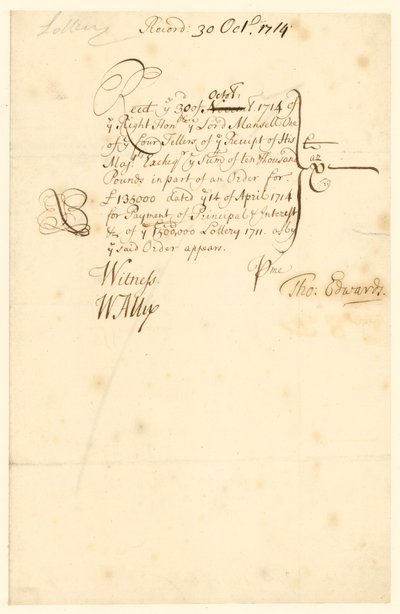 Lottery
Record: 30 Octo. 1714
Octobr.
Recd ye 30 of Novemr. 1714 of
ye Right Honble ye Lord Mansell One
of ye four Tellers of ye Receipt of His
Majts Excheqr ye Sum of ten Thousand
Pounds in part of an Order for
£135000 dated ye 14 of April 1714
for Payment of Principal & Interest
&c of ye 1500,000 Lottery 1711. as by
ye said Order appears.
Witness.
P me
Tho: Edwards.